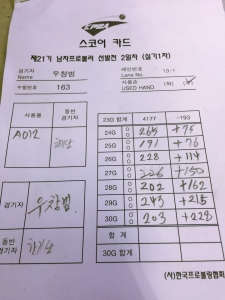 KPBA
스코어 카드
제21기 남자프로볼러 선발전 2일차 (실기1차)
경기자 Name 우창범 레인번호 Lane No. 13-1
수험번호 163 사용손 USED HAND
사용볼 동반경기자 23G 합계 4177 -193
A012 24G 265 +75
25G 191 +76
26G 228 +114
27G 226 +150
28G 202 +162
경기자 우창범 29G 243 +215
30G 203 +228
동반경기자 합 계
30G 합계
(사)한국프로볼링협회